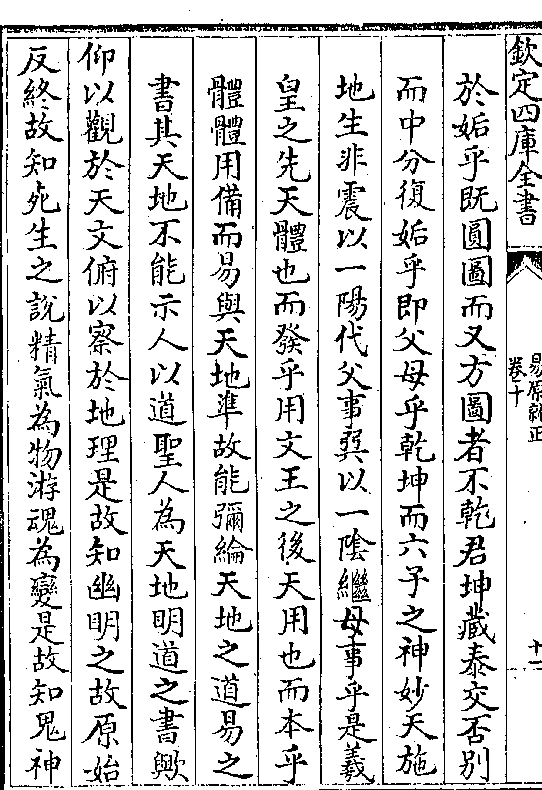 欽定四庫全書
易原就正
卷十
於姤乎既圓圖而又方圖者不乾君坤藏泰交否別
而中分復姤乎即父母乎乾坤而六子之神妙天施
地生非震以一陽代父事巽以一陰繼母事乎是羲
皇之先天體也而發乎用文王之後天用也而本乎
體體用備而易與天地準故能彌綸天地之道易之
書其天地不能示人以道聖人為天地明道之書歟
仰以觀於天文俯以察於地理是故知幽明之故原始
反終故知死生之說精氣為物游魂為變是故知鬼神